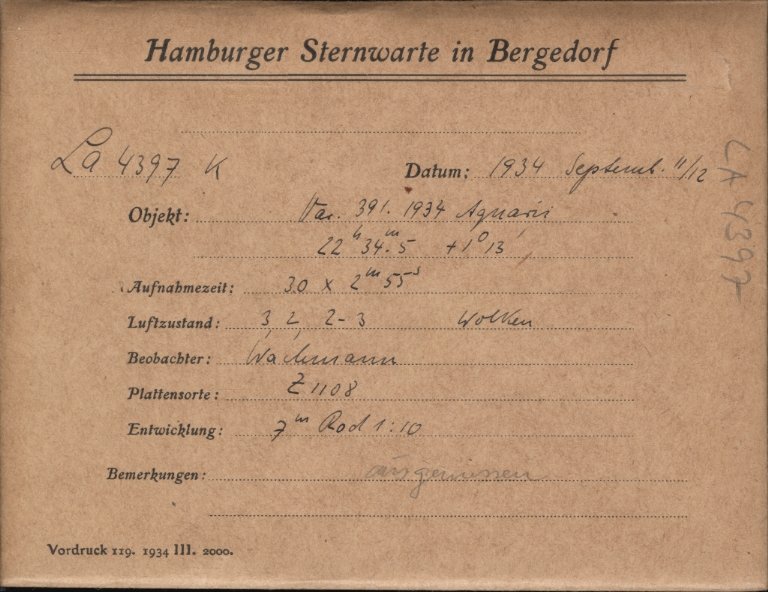 Hamburger Sternwarte in Bergedorf
La 4397 K
Datum: 1934 Septemb. 11/12
Objekt: Var. 391. 1934 Aquarii
22ʰ 34ᵐ.5 +1⁰ 13′
Aufnahmezeit: 30 x 2ᵐ 55ˢ
Luftzustand: 3, 2, 2-3 Wolken
Beobachter: Wachmann
Plattensorte: Z 1108
Entwicklung: 7ᵐ Rod 1:10
Bemerkungen: ausgemessen
Vordruck 119. 1934 III. 2000.
LA 4397